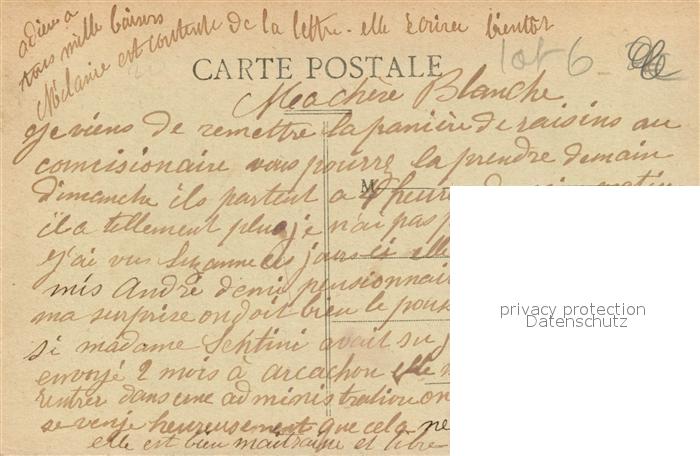 adieu a
tous mille baisers
Mélanie est contente de la lettre. elle ecrirea bientot
lot 6
CARTE POSTALE
Ma chère Blanche
je viens de remettre la panière de raisins au
comisionaire vous pourrez la prendre demain
dimanche ils partent a 4 heure
M
il a tellement plu je n'ai pas
j'ai vu Suzanne ces jours ci elle
mis André demi pensionnai
ma surprise on doit bien le pous
si madame Sentini avait su
envoyé 2 mois à arcachon elle
rentrer dans une administration on
se venje heureusement que cela ne
elle est bien maitraine et libre
privacy protection
Datenschutz